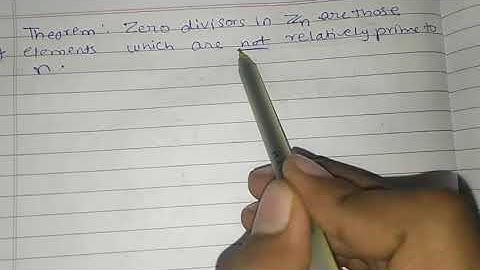 Theorem: Zero divisors in Zn are those
elements which are not relatively prime to
n.